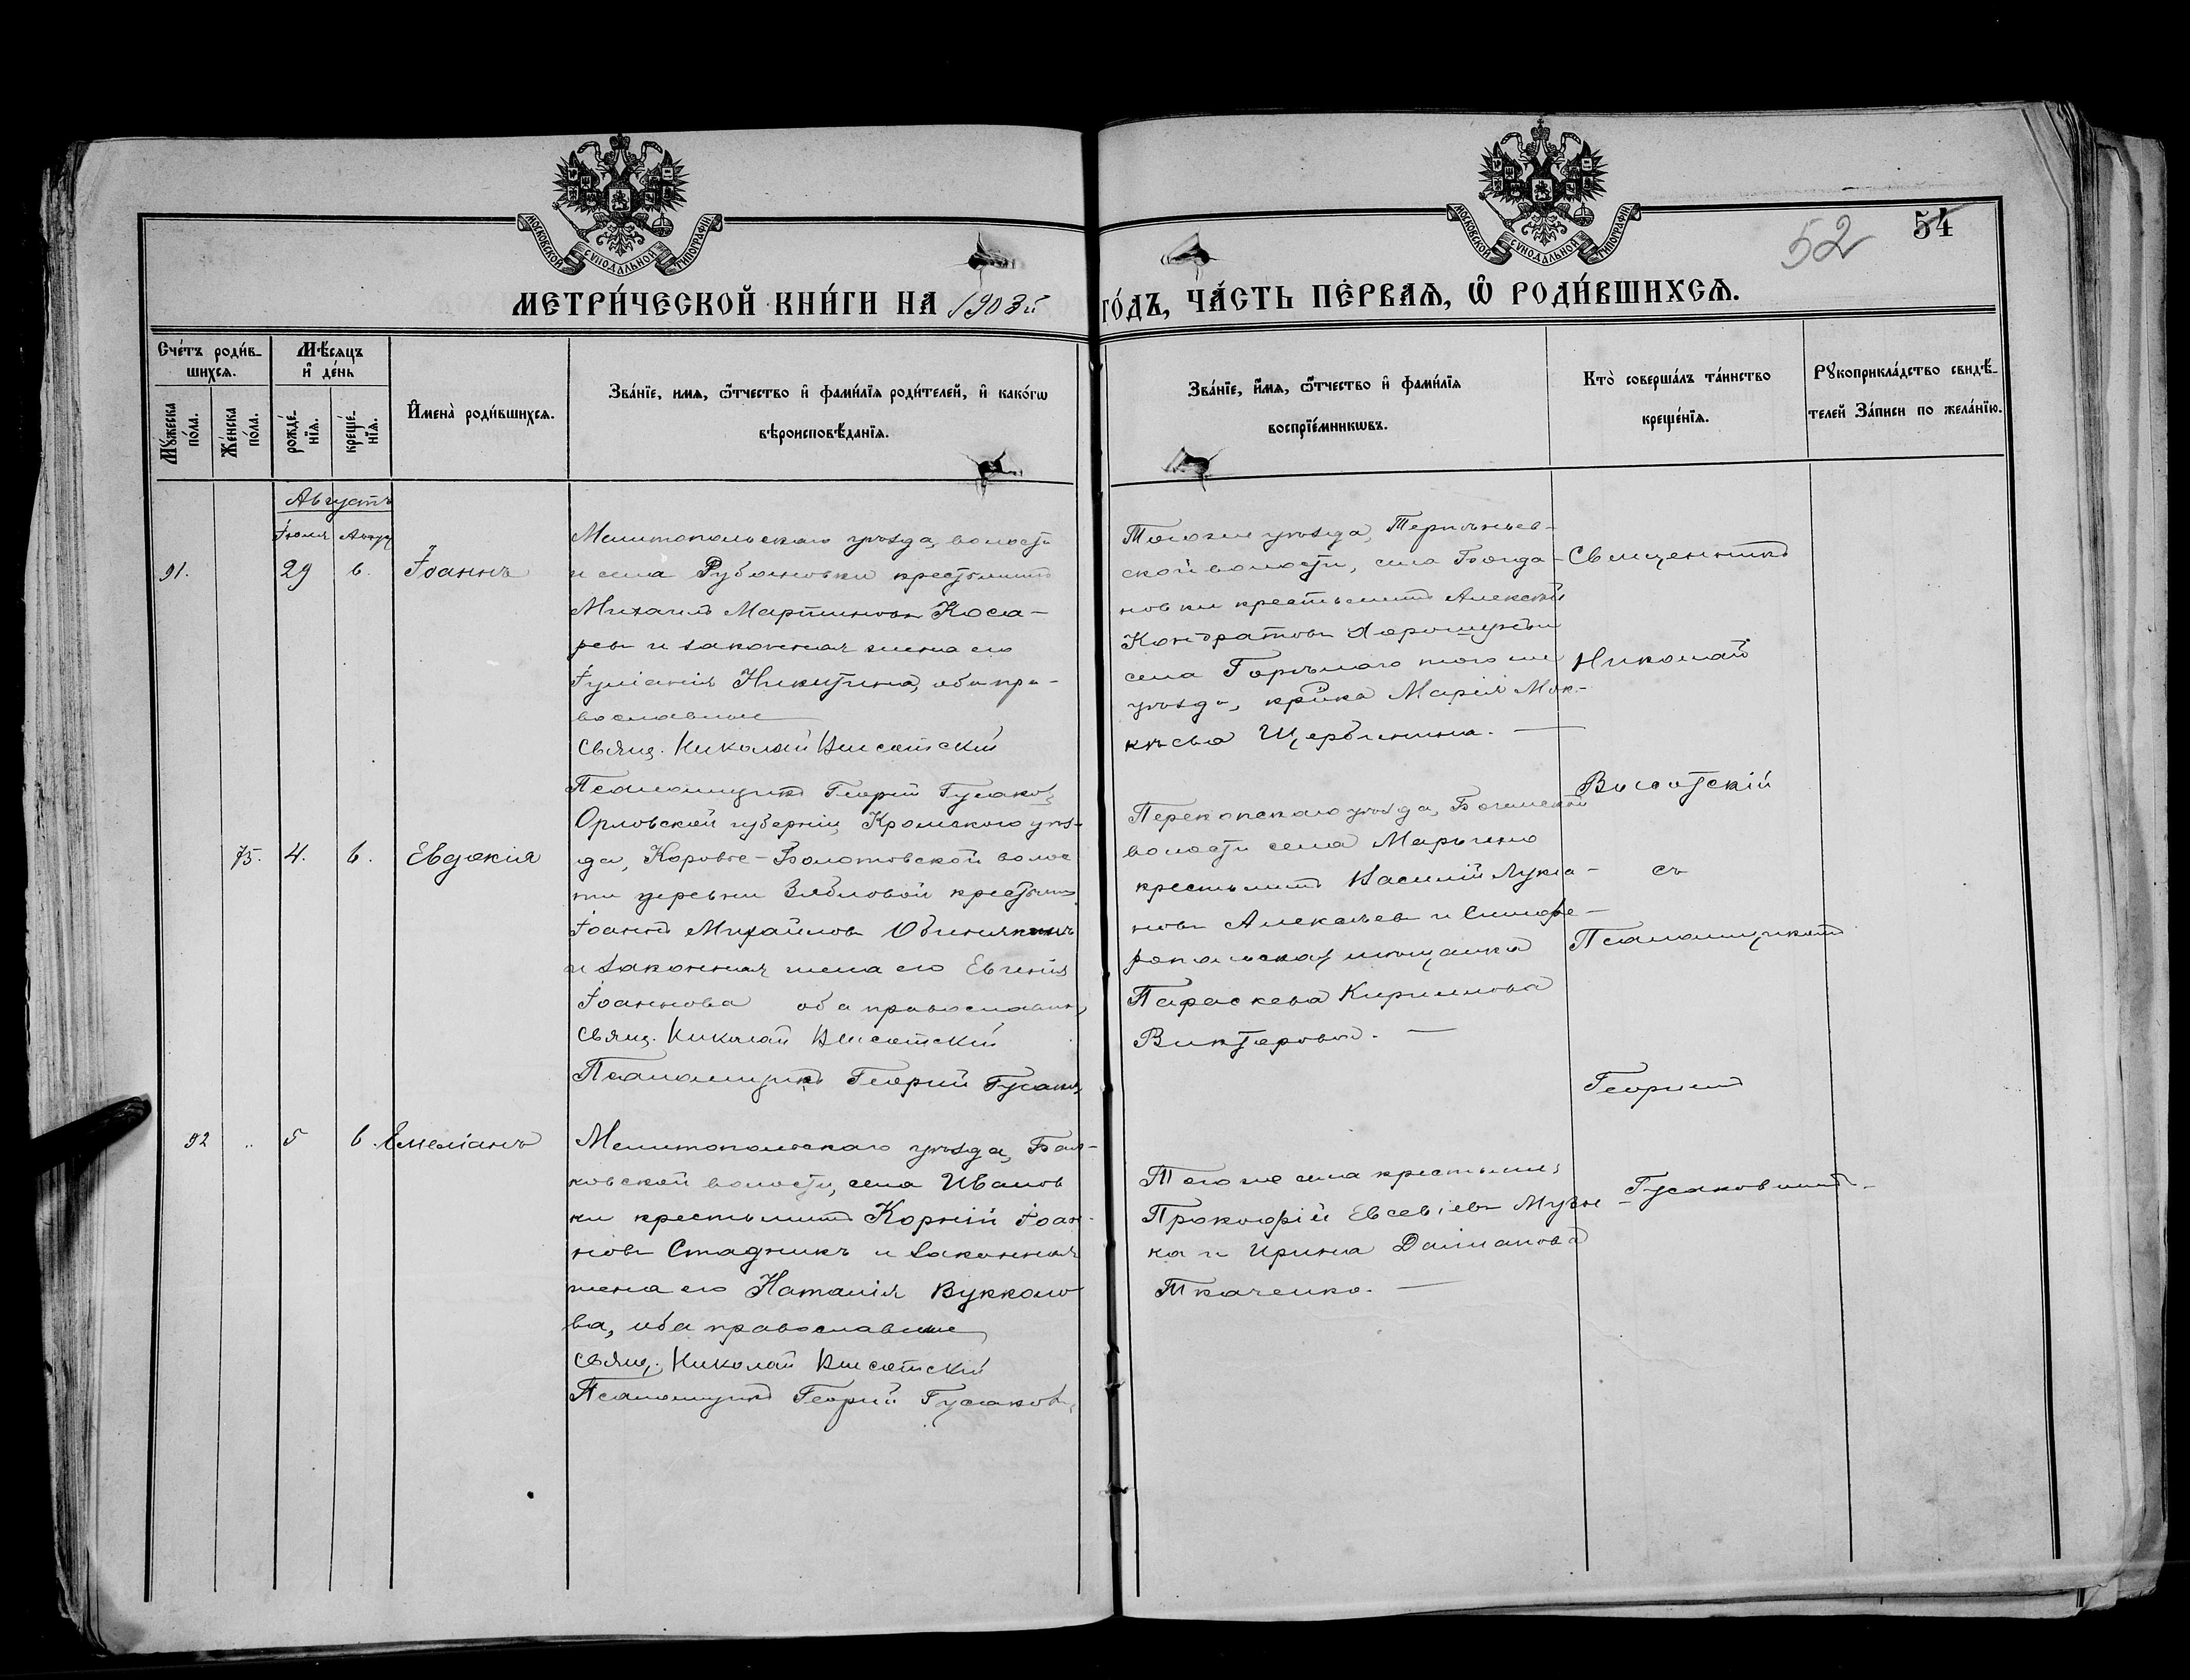 МОСКОВСКОЙ СѴНОДАЛЬНОЙ ТИПОГРАФІИ
МОСКОВСКОЙ СѴНОДАЛЬНОЙ ТИПОГРАФІИ
52 54
МЕТРИ́ЧЕСКОЙ КНИ́ГИ НА 1903й
ГО́ДЪ, ЧА́СТЬ ПЕ́РВАЯ, Ѽ РОДИ́ВШИХСЯ.
Сче́тъ роди́в-
шихся.
Мꙋ́жеска по́ла.
Же́нска по́ла.
Мѣ́сяцъ
и҆ де́нь
рожде́-
нїя.
креще́-
нїя.
И҆мена̀ роди́вшихся.
Зва́нїе, имя, ѻ҆́тчество и҆ фами́лїя роди́телей, и҆ како́гѡ
вѣроисповѣ́данїя.
Зва́нїе, и҆́мя, ѻ҆́тчество и҆ фами́лїя
воспрїе́мникѡвъ.
Кто̀ соверша́лъ та́инство
креще́нїя.
Рꙋкоприкла́дство свидѣ́-
телей За́писи по жела́нїю.
Августъ
Іюля Авгус
91. 29 6. Іоаннъ
Мелитопольскаго уѣзда, волости
и села Рубановки крестьянинъ
Михаилъ Мартиновъ Коса-
ревъ и законная жена его
Іуліанія Никитина, оба пра-
вославные
Свящ. Николай Высотскій
Псаломщикъ Георгій Гусаков
Тогоже уѣзда, Терпѣньев-
ской волости, села Богда-
новки крестьянинъ Алексѣй
Кондратовъ
села Горѣлаго того же
уѣзда, кр҃нка Марія Мок-
кѣева Щербинина. —
Священникъ
Николай
Высотскій
съ
Псаломщикомъ
Георгіемъ
Гусаковымъ.
75. 4. 6. Евдокія
Орловской губерніи, Кромского уѣз-
да, Коровье-Болотовской волос
ти деревни Зябловой крестьян
Іоаннъ Михайловъ
и законная жена его Евгенія
Іоаннова оба православны
Свящ. Николай Высотскій
Псаломщикъ Георгій Гусаков
Перекопскаго уѣзда,
волости села Марьино
крестьянинъ Василій Лукіа-
новъ Алексѣевъ и Симфе-
ропольская мѣщанка
Параскева Кириллова
Викторова. —
92 .. 5 6. Емеліанъ
Мелитопольскаго уѣзда, Бал-
ковской волости, села Иванов
ки крестьянинъ Корній Іоан-
новъ Стадникъ и законная
жена его Наталія Вукколо
ва, оба православные
Свящ. Николай Высотскій
Псаломщикъ Георгій Гусаковъ
Тогоже села крестьяне
Прокофій Евсевіевъ
ка и Ирина
Ткаченко. —